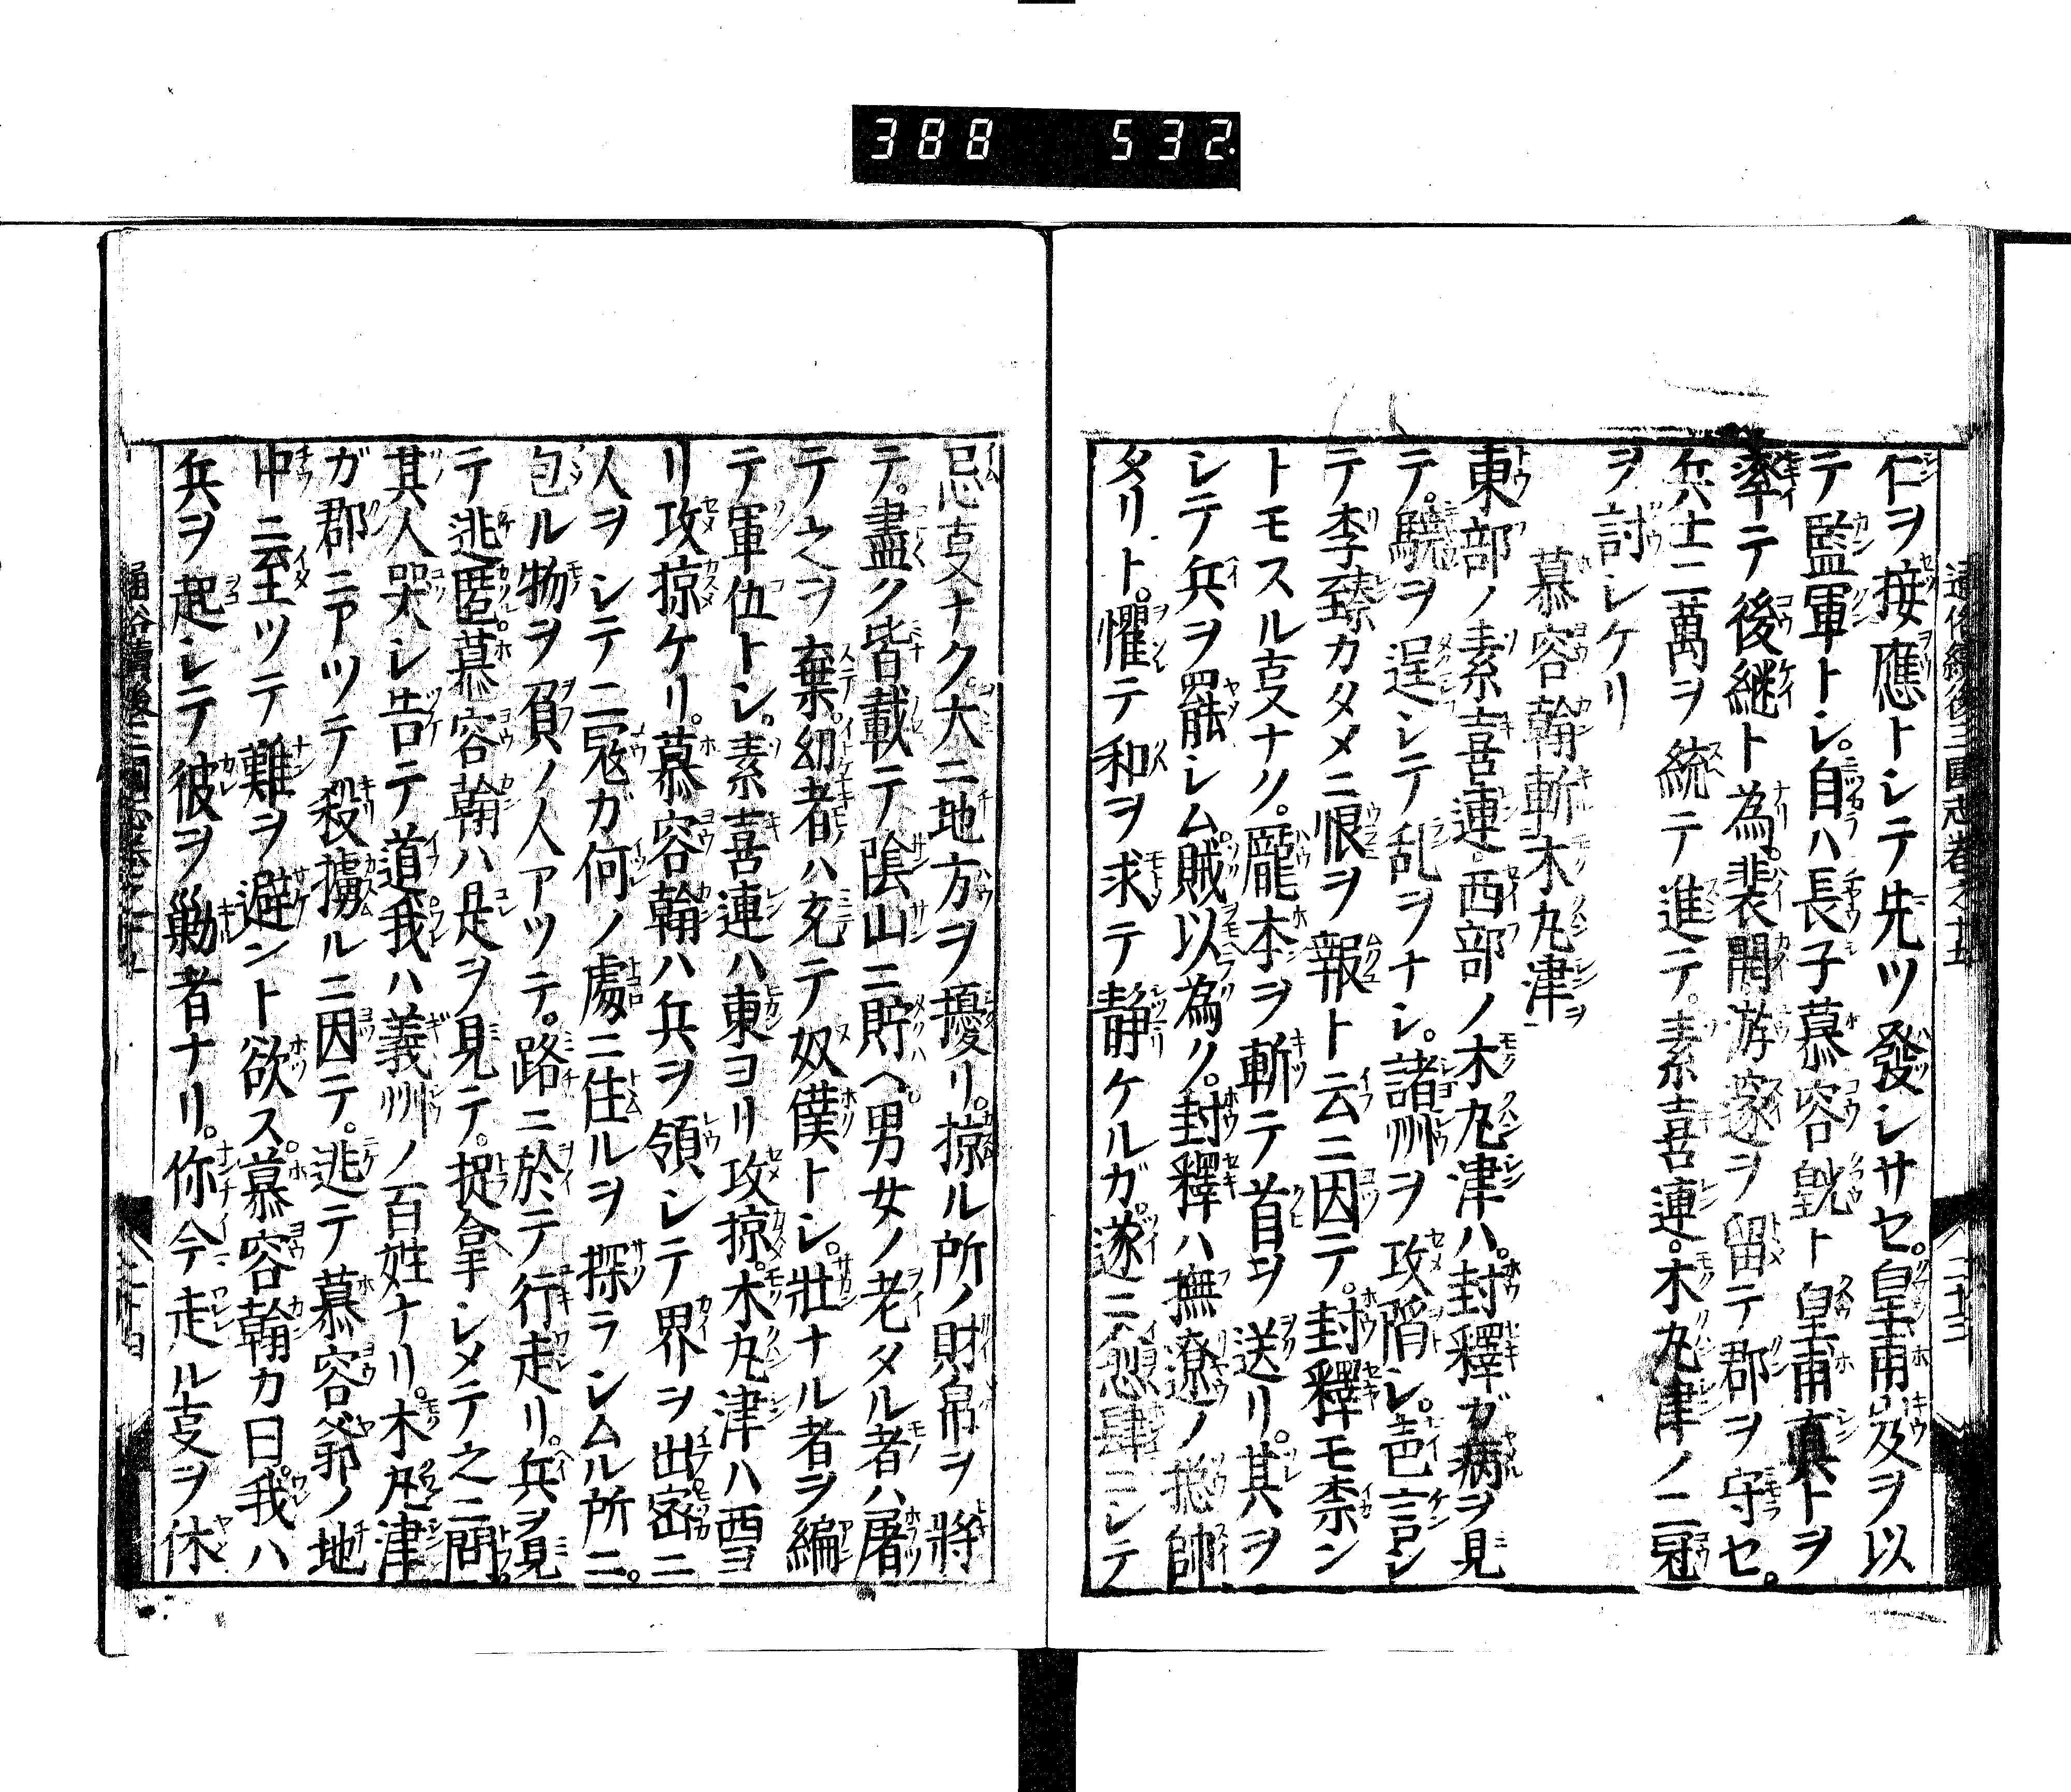 388 532
通俗續後三國志卷之十五
仁ヲ接應トシテ先ツ發シサセ。皇甫岌ヲ以
テ監軍トシ。自ハ長子慕容皝ト皇甫真トヲ
率テ後継ト為。裴開游邃ヲ留テ郡ヲ守セ。
兵士二萬ヲ統テ進テ。素喜連。木丸津ノ二冦
ヲ討シケリ
慕容翰斬木丸津ヲ
東部ノ素喜連西部ノ木丸津ハ。封釋ガ病ヲ見
テ。驍ヲ逞シテ乱ヲナシ。諸州ヲ攻陷シ。言シ
テ李臻カタメニ恨ヲ報ト云ニ因テ。封釋モ柰ン
トモスル叓ナク。龐本ヲ斬テ首ヲ送リ。其ヲ
シテ兵ヲ罷シム賊以為ク。封釋ハ撫遼ノ捴帥
タリト。懼テ和ヲ求テ静ケルガ。遂ニ愆肆ニシテ
忌叓ナク。大ニ地方ヲ擾リ。掠ル所ノ財帛ヲ將
テ。盡ク皆載テ陰山ニ貯ヘ。男女ノ老タル者ハ屠
テ之ヲ棄。幼者ハ充テ奴僕トシ。壯ナル者ヲ編
テ軍伍トシ。素喜連ハ東ヨリ攻掠。木丸津ハ西ヨ
リ攻掠ケリ。慕容翰ハ兵ヲ領シテ界ヲ出密ニ
人ヲシテ二冦ガ何ノ處ニ住ルヲ探ラシムル所ニ。
包ル物ヲ負ノ人アツテ。路ニ於テ行走リ。兵ヲ見
テ逃匿。慕容翰ハ是ヲ見テ。捉拿シメテ之ニ問。
其人哭シ告テ道我ハ義州ノ百姓ナリ。木丸津
ガ郡ニアツテ殺擄ルニ因テ。逃テ慕容爺ノ地
中ニ至ツテ難ヲ避ント欲ス。慕容翰カ曰。我ハ
兵ヲ起シテ彼ヲ勦者ナリ。你今走ル叓ヲ休